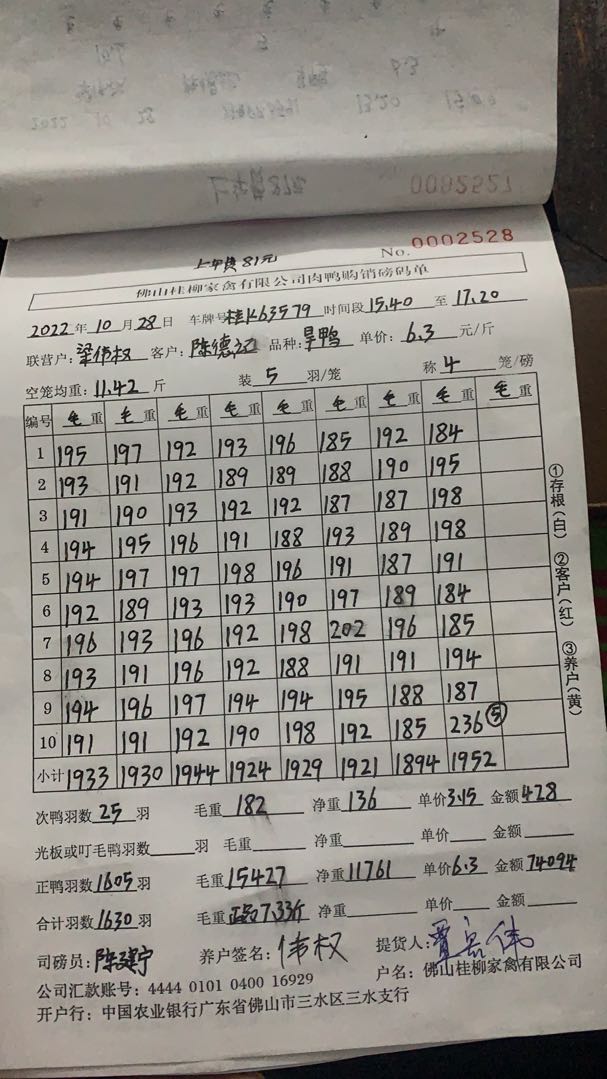 0092527
No. 0002528
上车费81元
佛山桂柳家禽有限公司肉鸭购销磅码单
2022年10月28日 车牌号桂K63579 时间段15.40至17.20
联营户:梁伟权 客户:陈德记 品种:旱鸭 单价:6.3元/斤
空笼均重:11.42斤 装5羽/笼 称4笼/磅
编号 毛重 毛重 毛重 毛重 毛重 毛重 毛重 毛重 重
1 195 197 192 193 196 185 192 184
2 193 191 192 189 189 188 190 195
3 191 190 193 192 192 187 187 198
4 194 195 196 191 188 193 189 198
5 194 197 197 198 196 191 187 191
6 192 189 193 193 190 197 189 184
7 196 193 196 192 198 202 196 185
8 193 191 196 192 188 191 191 194
9 194 196 197 194 194 195 188 187
10 191 191 192 190 198 192 185 236⑤
小计 1933 1930 1944 1924 1929 1921 1894 1952
次鸭羽数25羽 毛重182 净重136 单价3.15 金额428
光板或叮毛鸭羽数 羽 毛重 净重 单价 金额
正鸭羽数1605羽 毛重15427 净重11761 单价6.3 金额74094
合计羽数1630羽 毛重 7.33斤 净重 单价 金额
司磅员:陈建宁 养户签名:伟权 提货人:
公司汇款账号:4444 0101 0400 16929 户名:佛山桂柳家禽有限公司
开户行:中国农业银行广东省佛山市三水区三水支行
①存根(白) ②客户(红) ③养户(黄)